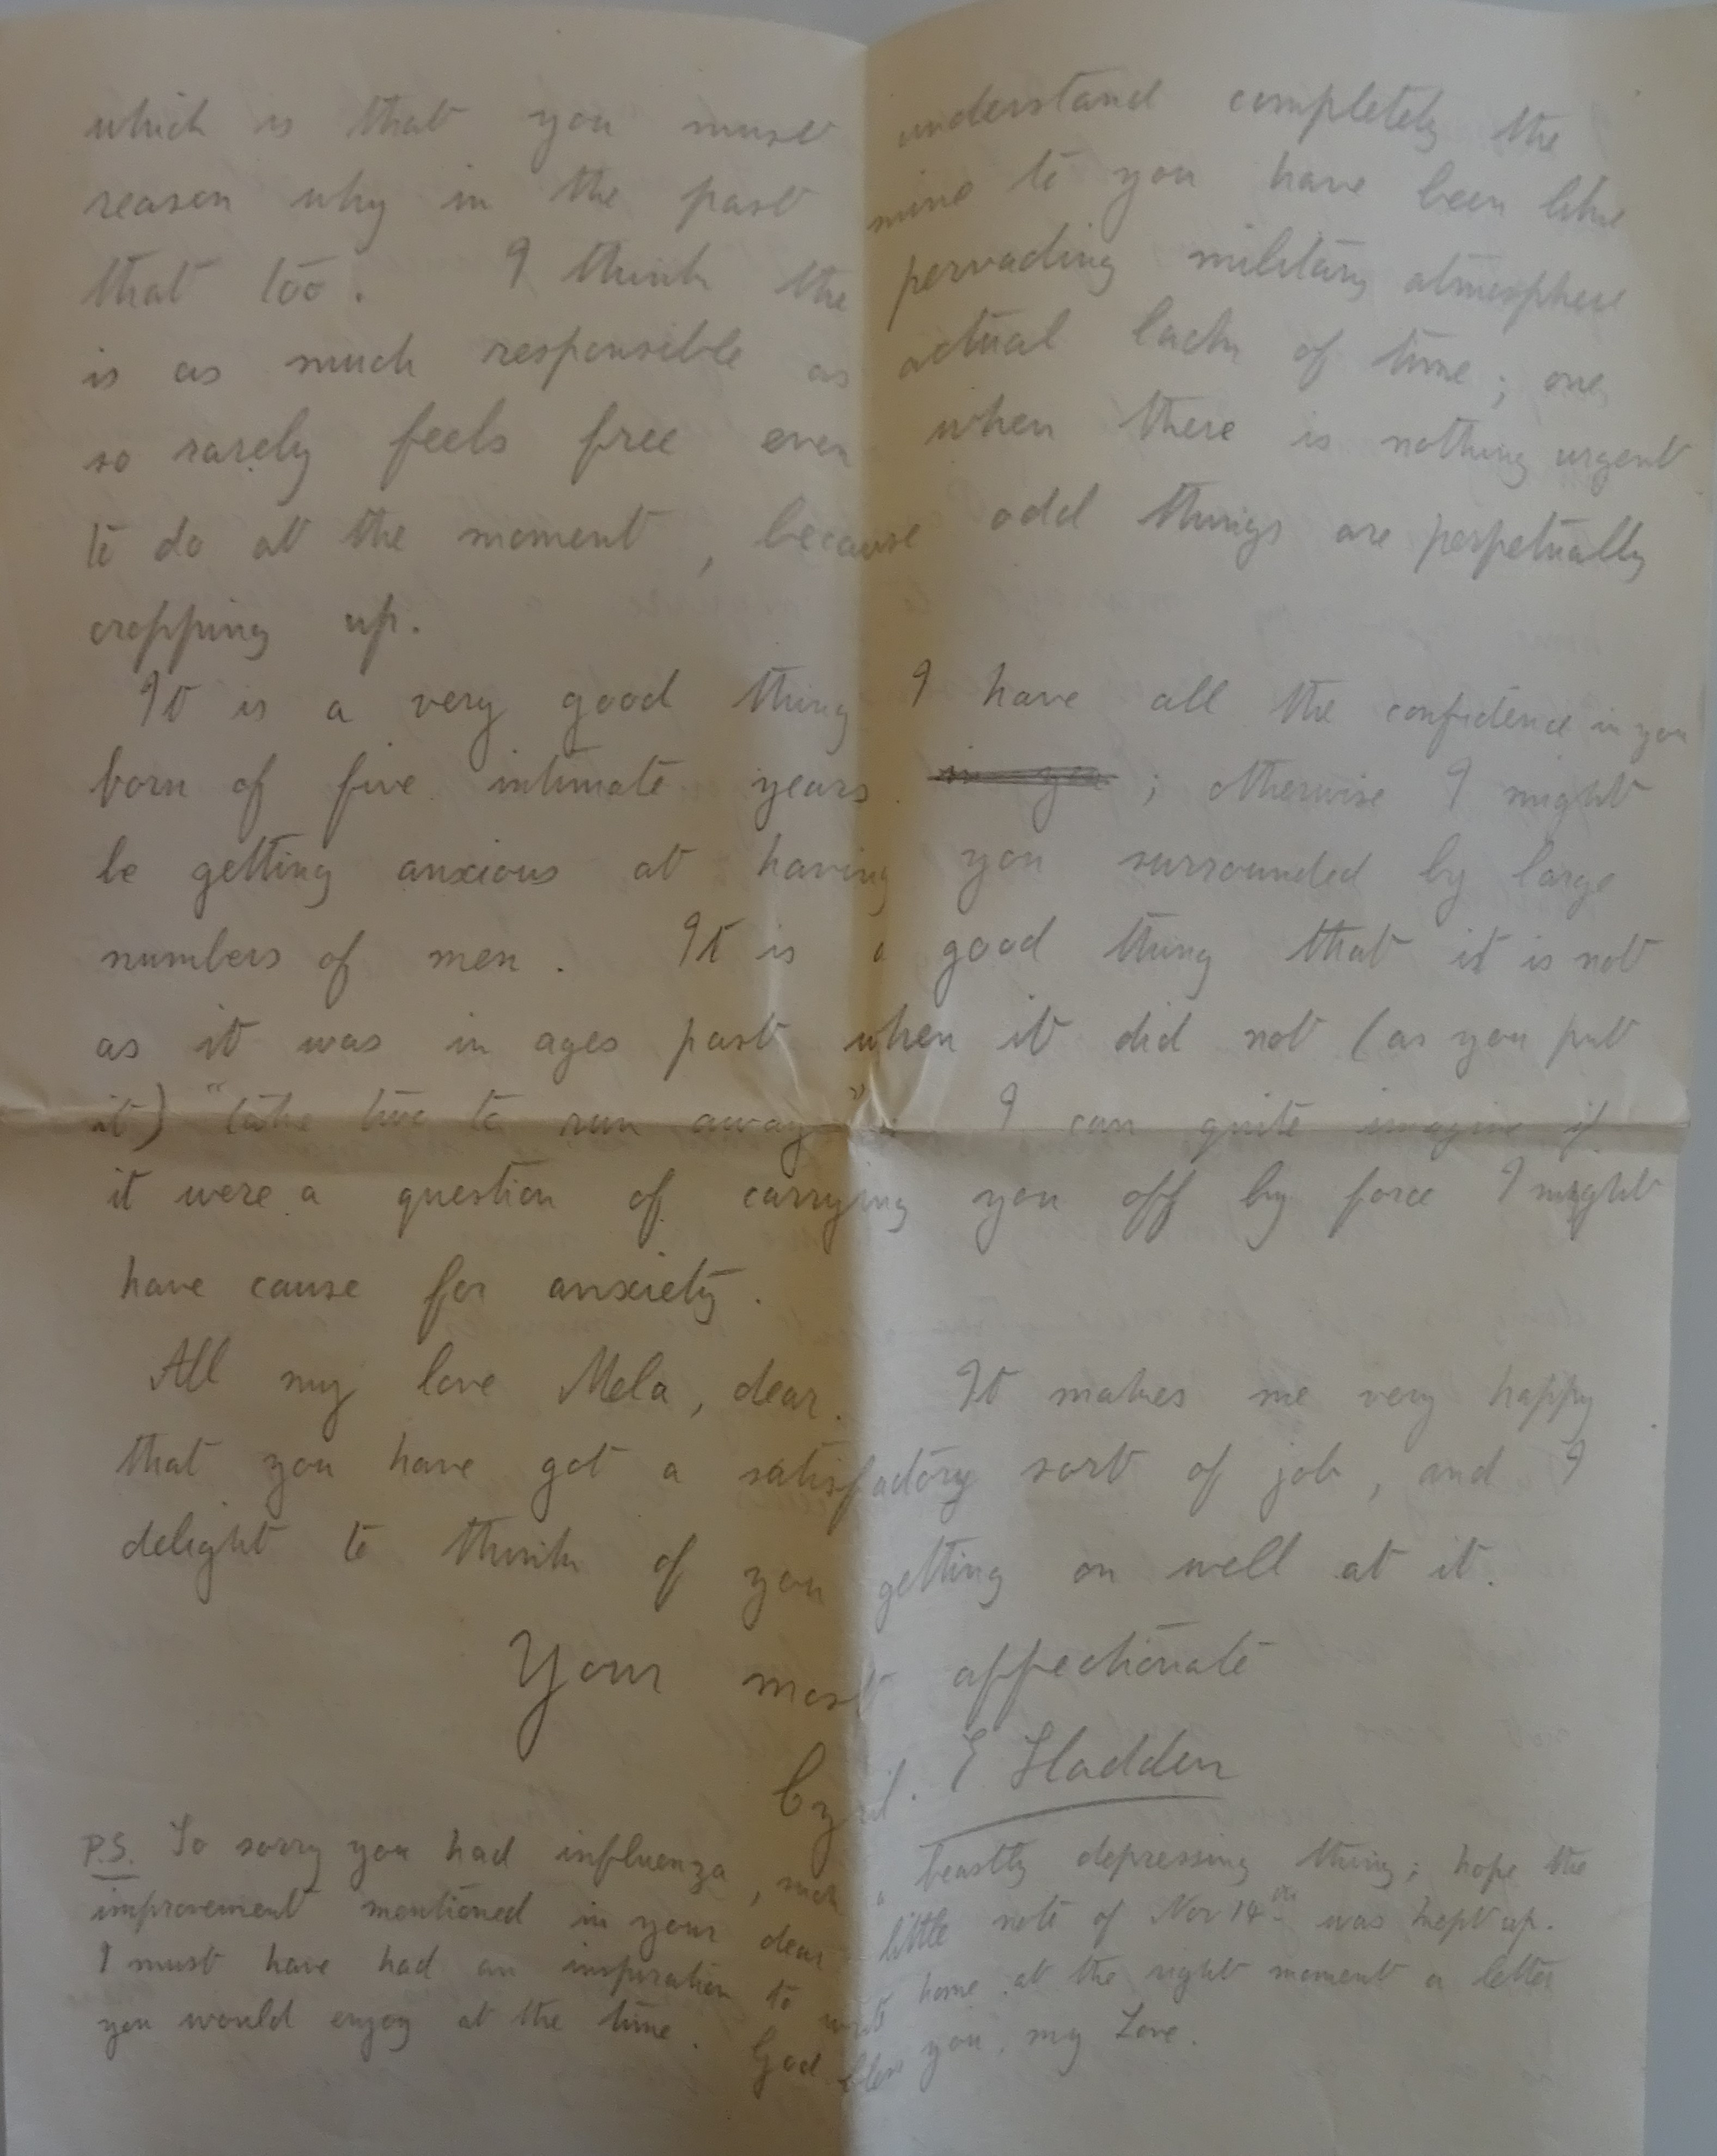 which is that you must understand completely the
reason why in the past mine to you have been like
that too. I think the pervading military atmosphere
is as much responsible as actual lack of time; one
so rarely feels free even when there is nothing urgent
to do at the moment, because odd things are perpetually
cropping up.
It is a very good thing I have all the confidence in you
born of five intimate years in you; otherwise I might
be getting anxious at having you surrounded by large
numbers of men. It is a good thing that it is not
as it was in ages past when it did not (as you put
it) "take two to run away". I can quite imagine if
it were a question of carrying you off by force I might
have cause for anxiety.
All my love Mela, dear. It makes me very happy
that you have got a satisfactory sort of job, and I
delight to think of you getting on well at it.
Your most affectionate
Cyril. E Sladden
P.S. So sorry you had influenza, such a beastly depressing thing; hope the
improvement mentioned in your dear little note of Nov 14th was kept up.
I must have had an inspiration to write home at the right moment a letter
you would enjoy at the time. God bless you, my Love.